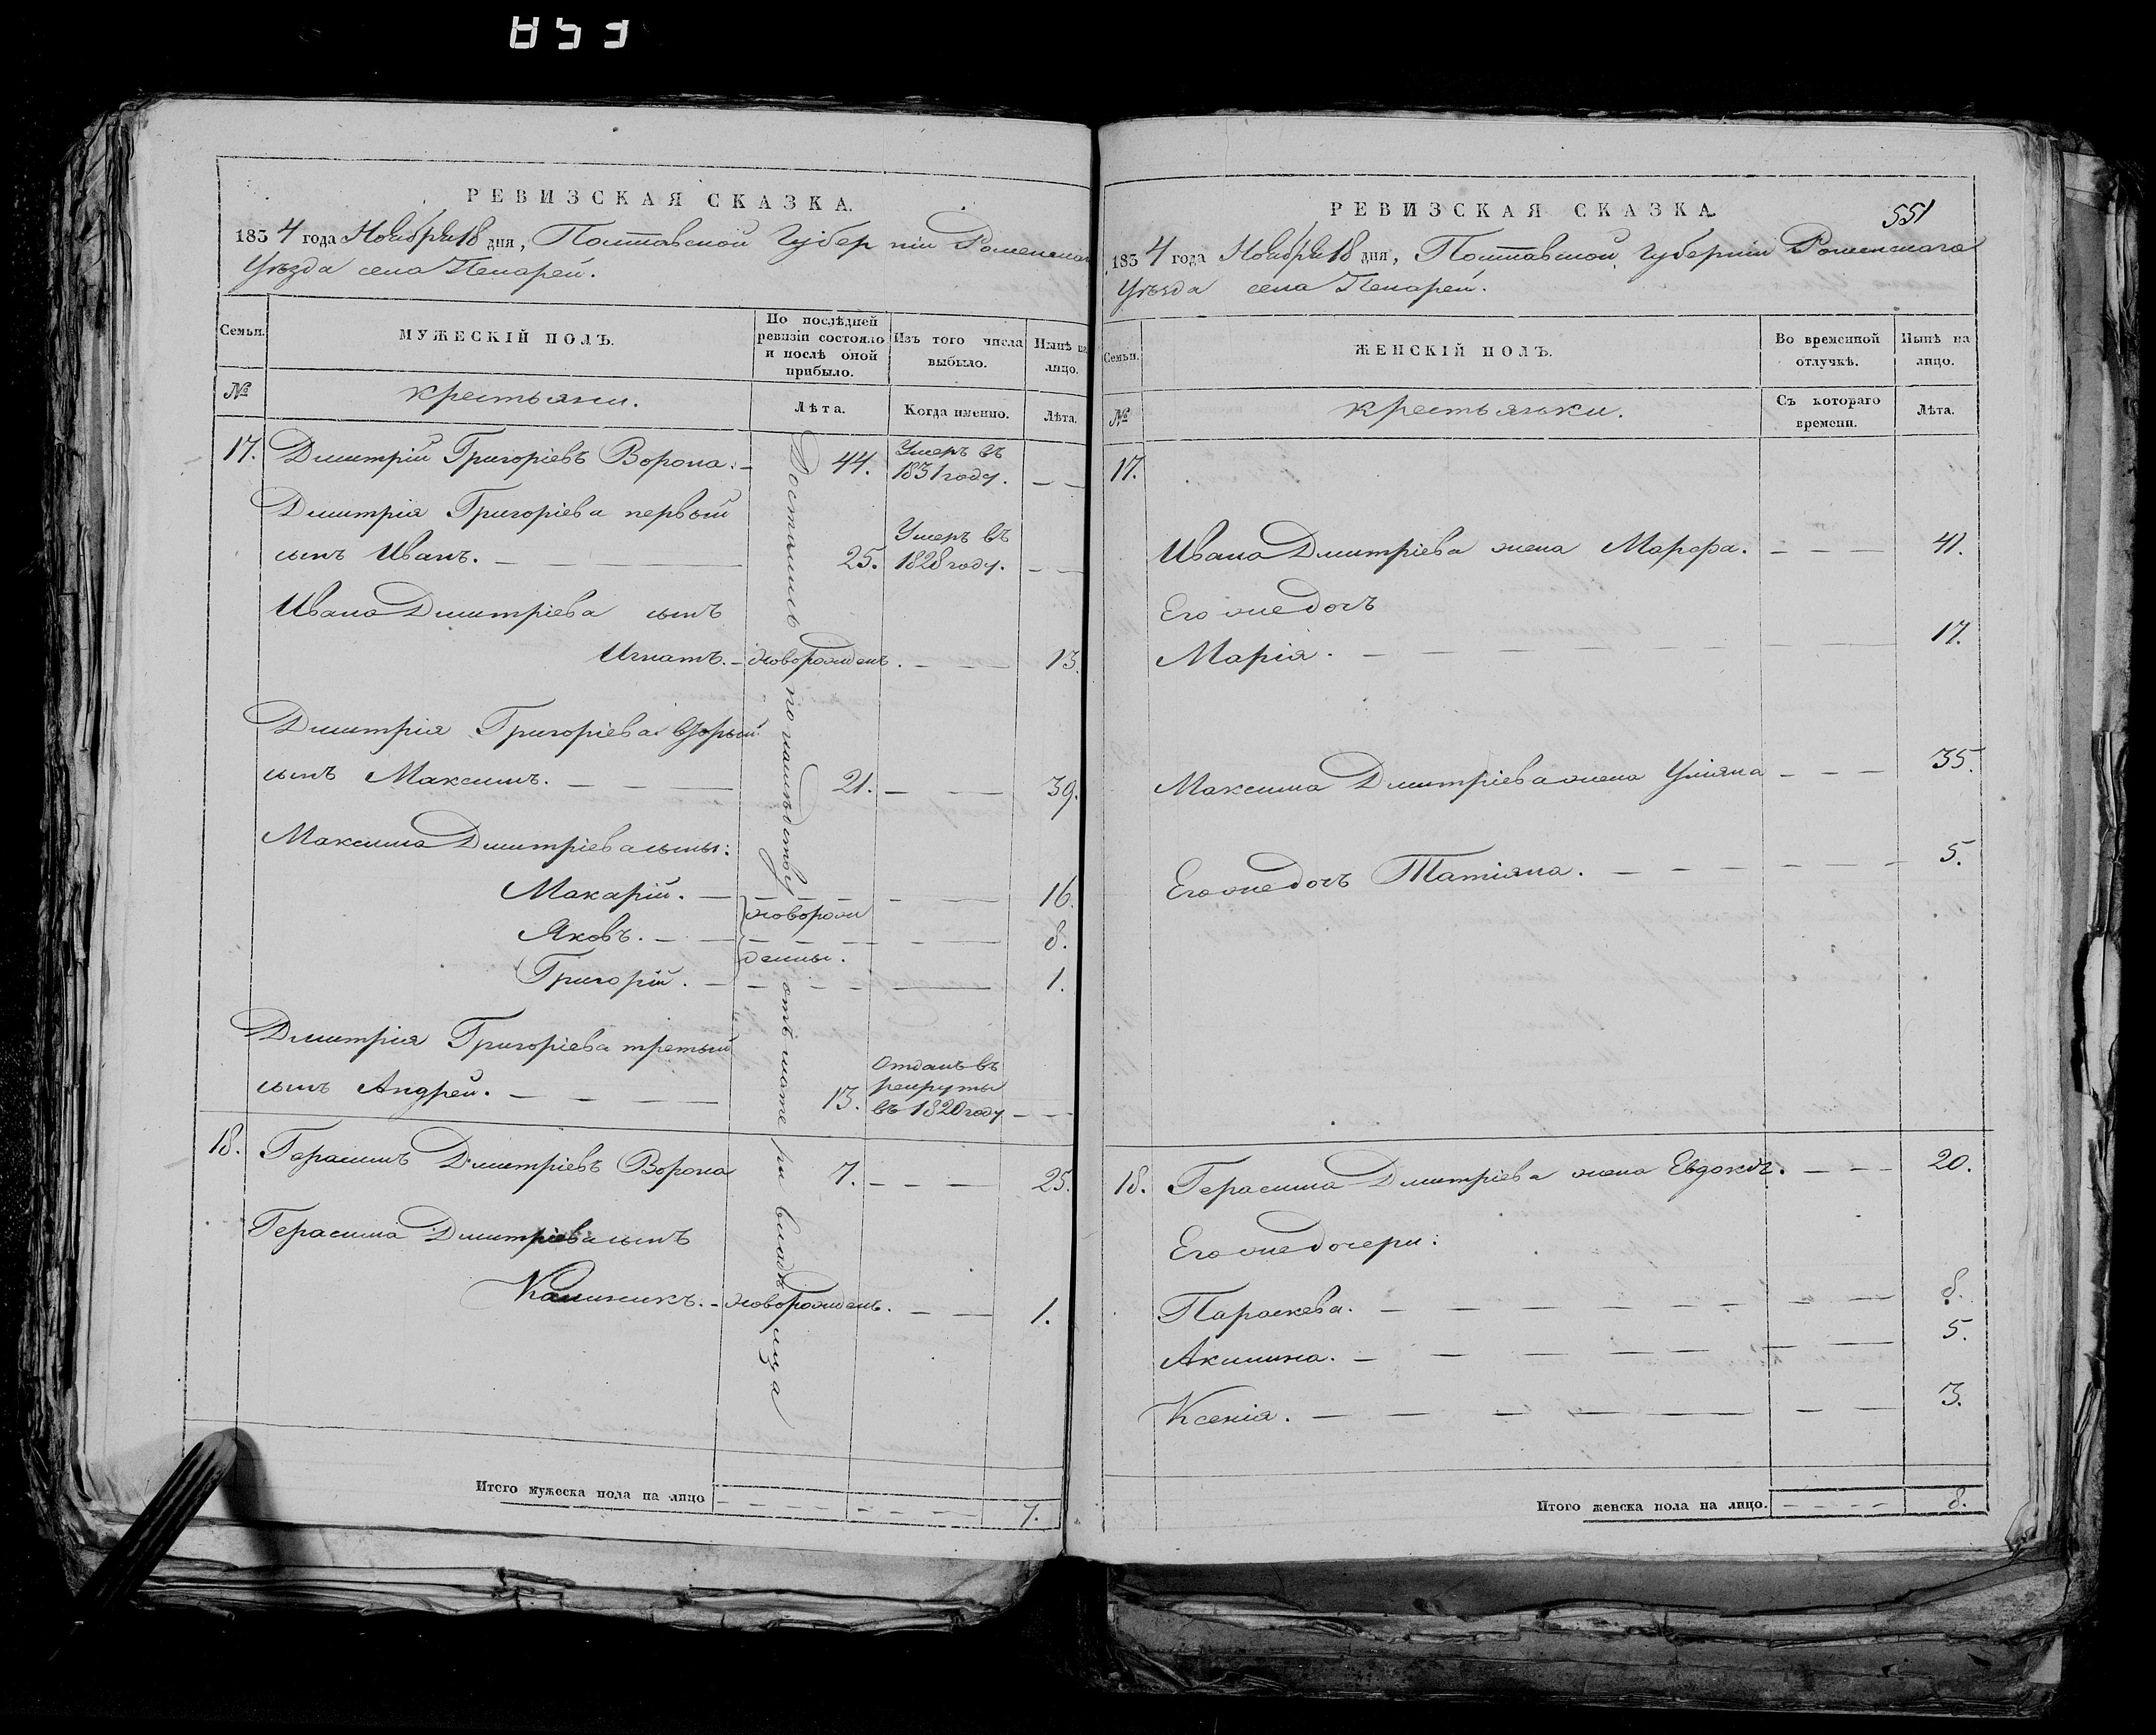 853
РЕВИЗСКАЯ СКАЗКА.
1834 года Ноября 18 дня, Полтавской Губернии Роменскаго
Уѣзда села Пекарей.
Семьи.
МУЖЕСКІЙ ПОЛЪ.
По послѣдней ревизіи состояло и послѣ оной прибыло.
Изъ того числа выбыло.
Нынѣ на лицо.
№
крестьяни.
Лѣта.
Когда именно.
Лѣта.
17. Дмитрій Григоріевъ Ворона. 44. Умеръ въ 1831 году.
Дмитрія Григоріева первый
сынъ Иванъ. 25. Умеръ въ 1828 году.
Ивана Дмитріева сынъ
Игнатъ. новорожденъ. 13.
Дмитрія Григоріева вторый
сынъ Максимъ. 21. 39.
Максима Дмитріева сыны:
Макарій. 16.
новорож
Яковъ. 8.
денны.
Григорій. 1.
Дмитрія Григоріева третый
сынъ Андрей. 13. Отданъ въ рекруты въ 1820 году
18. Герасимъ Дмитріевъ Ворона 7. 25.
Герасима Дмитріева сынъ
Калиникъ. новорожденъ. 1.
Достались по наслѣдству отъ матери владѣлица
Итого мужеска пола на лицо 7.
551
РЕВИЗСКАЯ СКАЗКА.
1834 года Ноября 18 дня, Полтавской Губерніи Роменскаго
Уѣзда села Пекарей.
Семьи.
ЖЕНСКІЙ ПОЛЪ.
Во временной отлучкѣ.
Нынѣ на лицо.
№
крестьянки.
Съ котораго времени.
Лѣта.
17.
Ивана Дмитріева жена Марфа. 41.
Его же дочь
Марія. 17.
Максима Дмитріева жена Уліяна 35.
Его же дочь Татіяна. 5.
18. Герасима Дмитріева жена Евдокія. 20.
Его же дочери:
Параскева. 8.
Акилина. 5.
Ксенія. 3.
Итого женска пола на лицо. 8.